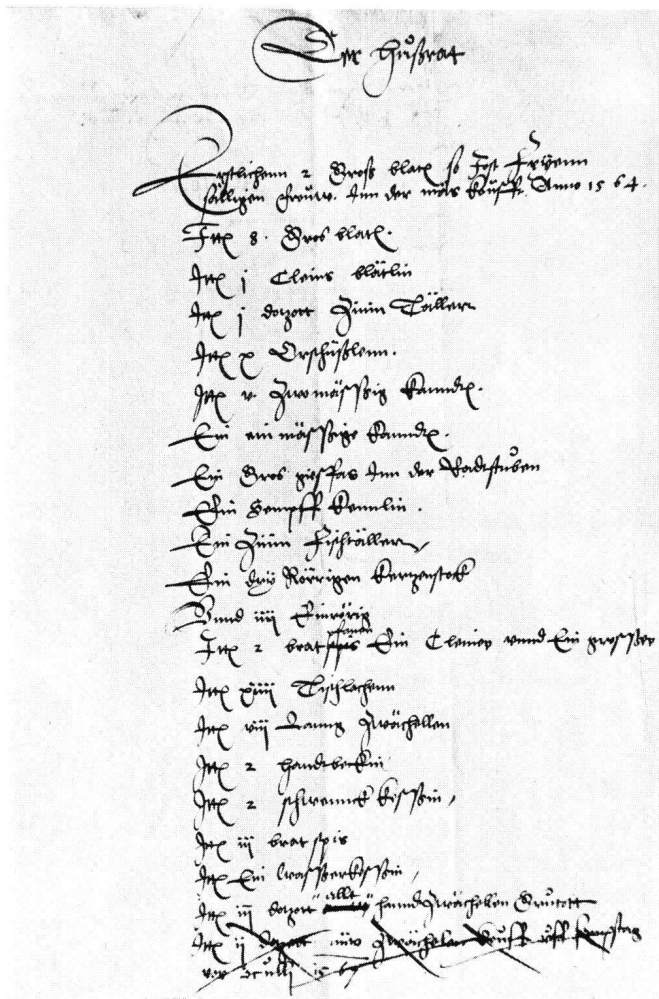 Der hußrat
Erstlichenn 2 Gross blatt so Jost
sälligen frouw. Inn der märs kouft. Anno 1564.
Itt 8. Gros blatt.
Itt j Cleins blätlin
Itt j dozett Zinin Täller
Itt x Orschüßlenn.
Itt v Zwo mässsig kanndt.
Ein ein mässsige kanndt.
Ein Gros giessfas Inn der Radtstuben
Ein Sempff kennlin.
Ein Zinin fischtäller
Ein dry Rörrigen kerzenstock
Unnd iiij Einrörig
Itt 2 brat pfanen Ein Cleiney unnd Ein grossey
Itt xiiij Tischlachenn
Itt viij Lanng Zwächellen
Itt 2 handtbeckin
Itt 2 schwennck kessin,
Itt iij brat spis
Itt Ein wasserkessin,
Itt iij dozett allt hanndzwächellen
Itt ij dozett nüw Zwächelen kouft uff
vor